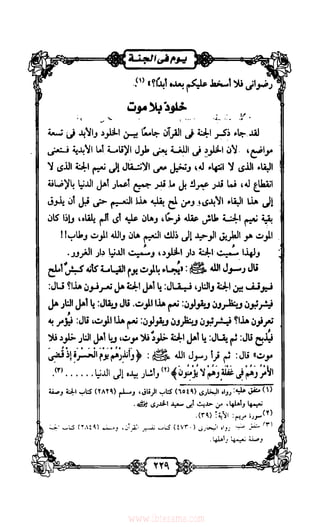 يوم فى الجنة
رضوانى فلا أسخط عليكم بعده أبدًا؟» (١).
خلودٌ بلا موت
لقد جاء ذكر الجنة فى القرآن جامعًا بين الخلود والأبد فى تسعة
مواضع، لأن الخلود فى اللغة يعنى طول الإقامة أما الأبدية فتعنى
البقاء الذى لا انتهاء له، وتخيل معى الانتقال إلى نعيم الجنة الذى لا
انقطاع له، فما قدر عمرك بل ما قدر جميع أعمار أهل الدنيا بالإضافة
إلى هذا البقاء الأبدى، ومن لمح بقلبه هذا النعيم حتى قبل أن يذوق
بقية نعيم الجنة طاش عقله فرحًا، وهان عليه أى ألم يلقاه، وإذا كان
الموت هو الطريق الوحيد إلى ذلك النعيم هان والله الموت وطاب!!
ولهذا سُميت الجنة دار الخلود، وسميت الدنيا دار الغرور.
قال رسول الله ﷺ: «يُجاء بالموت يوم القيامة كأنه كبش أملح
فيوقف بين الجنة والنار، فيقال: يا أهل الجنة هل تعرفون هذا؟ قال:
فيشرئبون وينظرون ويقولون: نعم هذا الموت. قال ويقال: يا أهل النار هل
تعرفون هذا؟ فيشرئبون وينظرون ويقولون: نعم هذا الموت، قال: فيؤمر به
فيُذبح قال: ثم يقال: يا أهل الجنة خلودٌ فلا موت، ويا أهل النار خلود فلا
موت» قال: ثم قرأ رسول الله ﷺ: ﴿وَأَنذِرْهُمْ يَوْمَ الْحَسْرَةِ إِذْ قُضِىَ
الأَمْرُ وَهُمْ فِى غَفْلَةٍ وَهُمْ لا يُؤْمِنُونَ﴾ (٢) وأشار بيده إلى الدنيا...... (٣).
(١) متفق عليه: رواه البخارى (٦٥٤٩) كتاب الرقاق، ومسلم (٢٨٢٩) كتاب الجنة وصفة
نعيمها وأهلها، من حديث أبى سعيد الخدرى
(٢) سورة مريم: الآية: (٣٩).
(٣) متفق عليه: رواه البخارى (٤٧٣٠) كتاب تفسير القرآن، ومسلم (٢٨٤٩) كتاب الجنة
وصفة نعيمها وأهلها.
٢٢٩